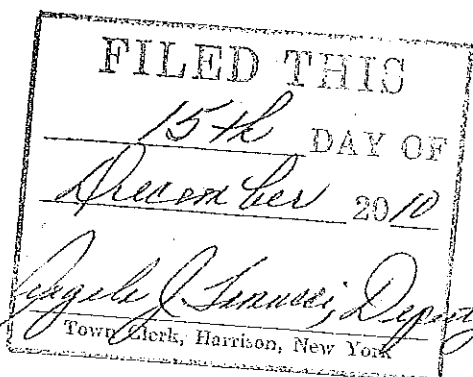 FILED THIS
15th DAY OF
December 2010
Angela J. Deputy
Town Clerk, Harrison, New York